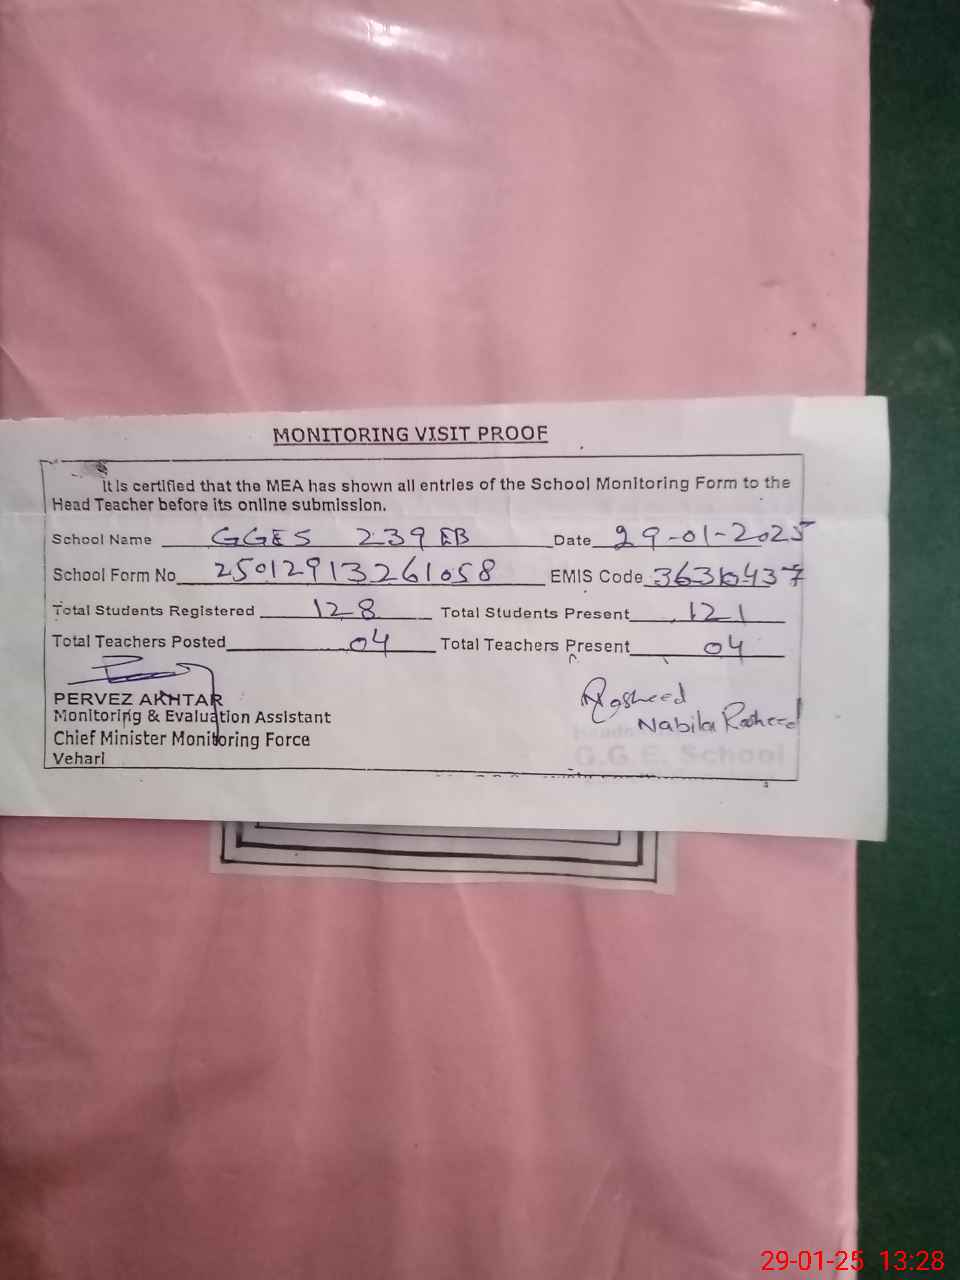 MONITORING VISIT PROOF
It is certified that the MEA has shown all entries of the School Monitoring Form to the
Head Teacher before its online submission.
School Name GGES 239 EB Date 29-01-2025
School Form No 25012913261058 EMIS Code 36310437
Total Students Registered 128 Total Students Present 121
Total Teachers Posted 04 Total Teachers Present 04
PERVEZ AKHTAR
Rasheed
Monitoring & Evaluation Assistant
Nabila Rasheed
Chief Minister Monitoring Force
G.G.E. School
Vehari
29-01-25 13:28